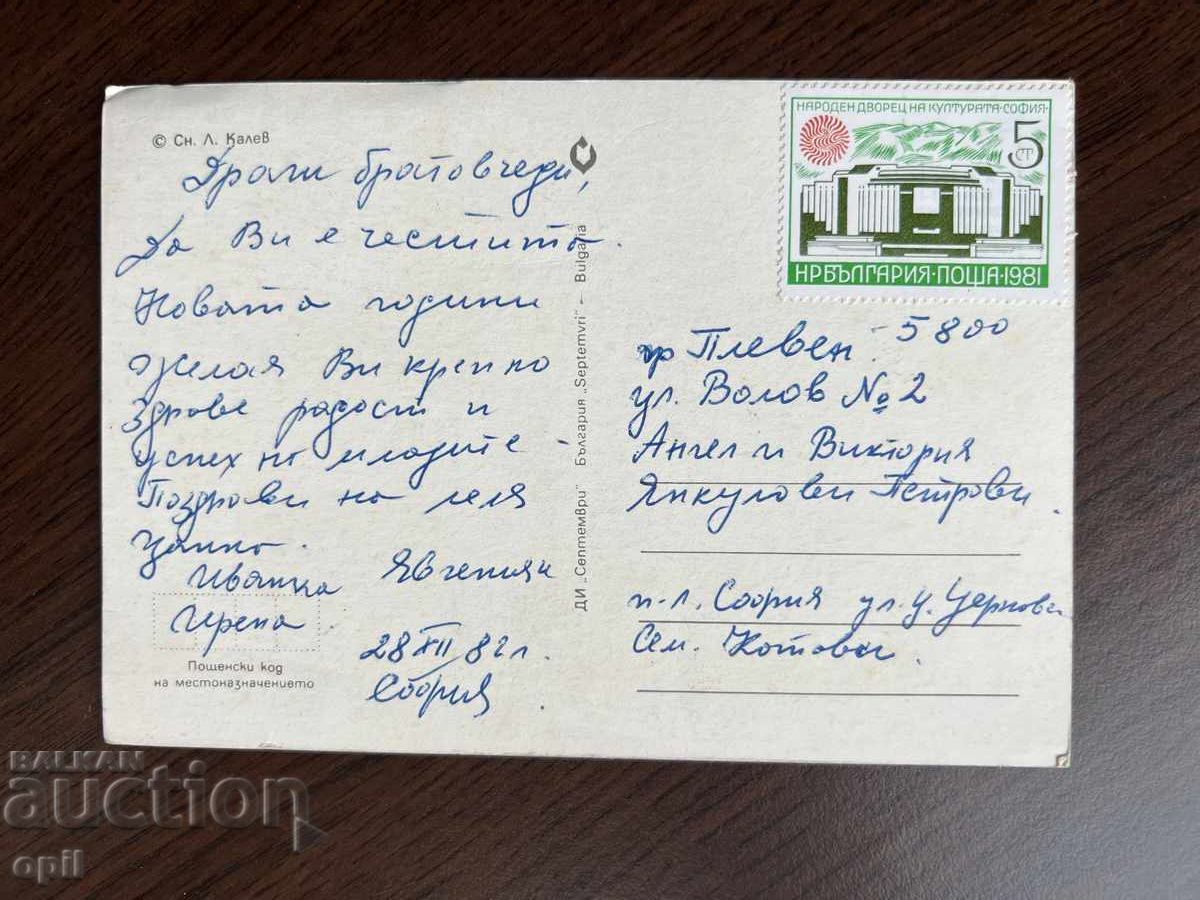 © Сн. Л. Калев
Драги братовчеди,
Да Ви е честита
Новата година
Желая Ви крепко
здраве радост и
успех на младите -
Поздрави на леля
Цанка.
Иванка Явгения
Ирена
28 XII 82 г.
София
Пощенски код
на местоназначението
ДИ „Септември" България „Septemvri" - Bulgaria
НАРОДЕН ДВОРЕЦ НА КУЛТУРАТА·СОФИЯ·
5
СТ
НР БЪЛГАРИЯ·ПОЩА·1981
гр Плевен - 5800
ул. Волов № 2
Ангел и Виктория
Янкулови Петрови.
п-л. София ул. Ц. Церковски
Сем. Котови.
BALKAN
auction
opil